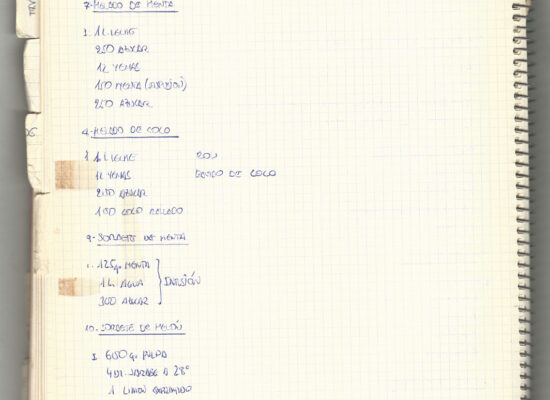 7- HELADO DE MENTA
1. 1L LECHE
250 AZUCAR
12 YEMAS
150 MENTA (INFUSIÓN)
250 AZUCAR
HELADO DE COCO
1. 1L LECHE RON
12 YEMAS BATIDO DE COCO
250 AZUCAR
100 COCO RALLADO
9- SORBETE DE MENTA
1. 125g. MENTA
1L. AGUA INFUSIÓN
300 AZUCAR
10. SORBETE DE MELÓN
1. 600 g. PULPA
4 DL. JARABE A 28°
1 LIMON EXPRIMIDO